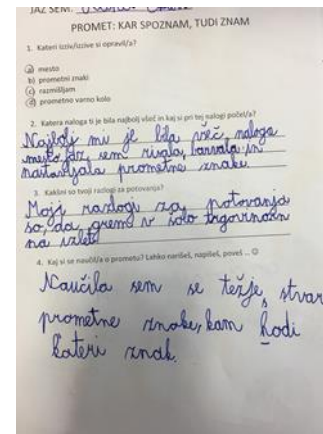 JAZ SEM:
PROMET: KAR SPOZNAM, TUDI ZNAM
1. Kateri izziv/izzive si opravil/a?
a) mesto
b) prometni znaki
c) razmišljam
d) prometno varno kolo
2. Katera naloga ti je bila najbolj všeč in kaj si pri tej nalogi počel/a?
Najbolj mi je bila všeč naloga
mesto, jaz sem risala, barvala in
nastavljala prometne znake.
3. Kakšni so tvoji razlogi za potovanja?
Moji razlogi za potovanja
so, da grem v šolo trgovino in
na izlet.
4. Kaj si se naučil/a o prometu? Lahko narišeš, napišeš, poveš ... ☺
Naučila sem se težje stvar
prometne znake, kam hodi
kateri znak.